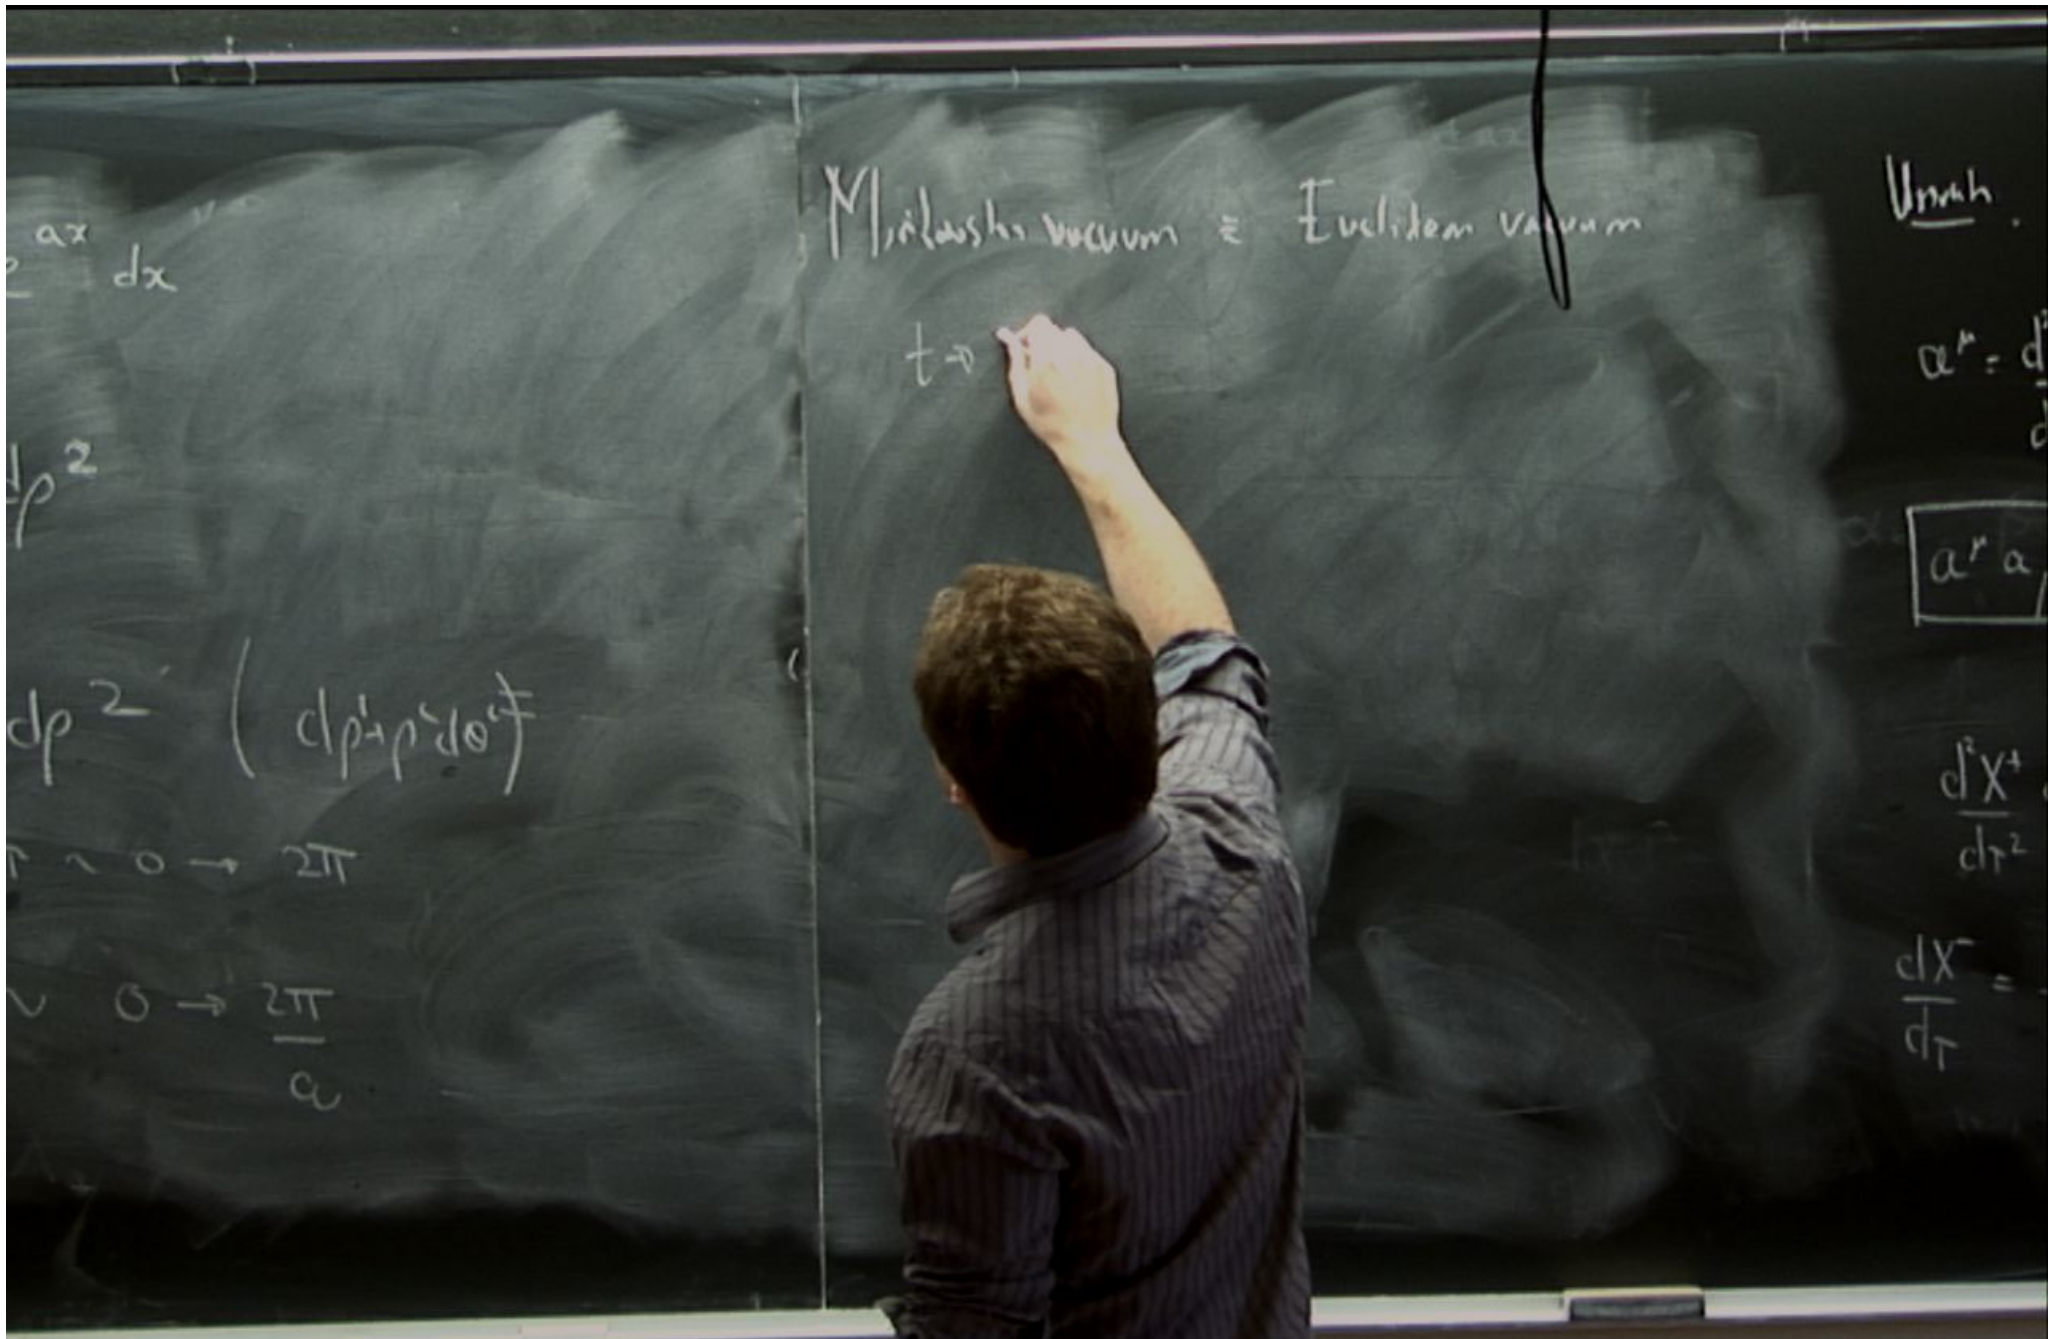 ax
dx
dρ²
dρ² ( dρ²+ρ²dθ² )
0 → 2π
0 → 2π
a
Minkowski vacuum = Euclidean vacuum
t →
Unruh
a^μ = d²
d
a^μ a
d²X⁺
dτ²
dX⁻ =
dτ